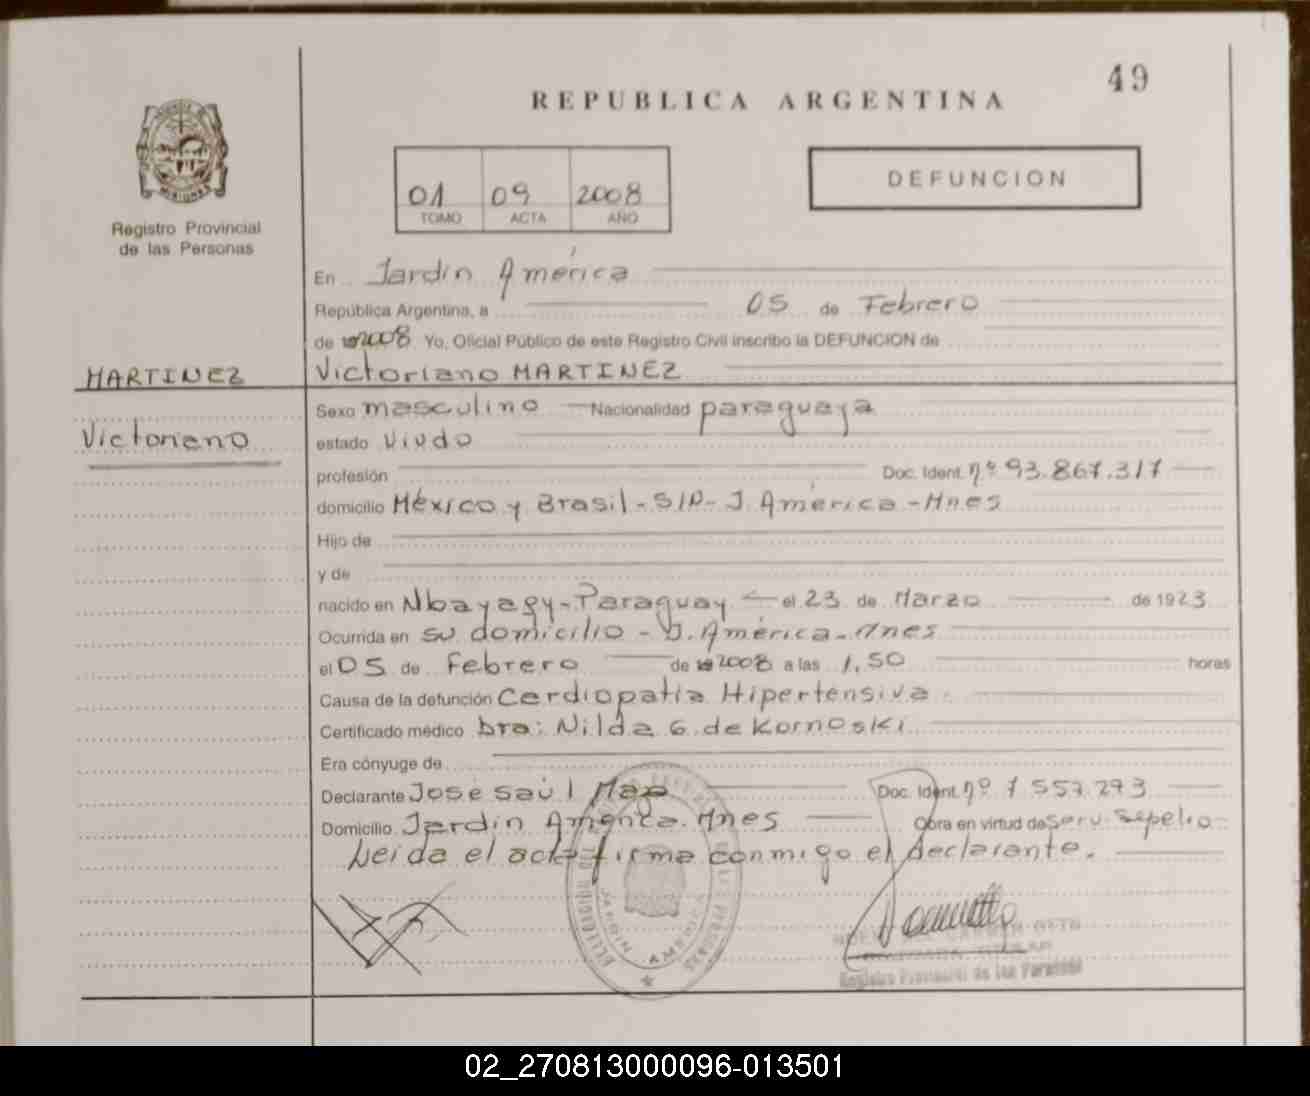 49
REPUBLICA ARGENTINA
MISIONES
Registro Provincial
de las Personas
01 09 2008
TOMO ACTA AÑO
DEFUNCION
En Jardín América
República Argentina, a 05 de Febrero
de 2008 Yo, Oficial Público de este Registro Civil inscribo la DEFUNCION de
MARTINEZ
Victoriano MARTINEZ
Sexo masculino Nacionalidad paraguaya
Victoriano
estado Viudo
profesión Doc. Ident. nº 93.867.317
domicilio México y Brasil - S/N - J. América - Mnes
Hijo de
y de
nacido en Mbayagy - Paraguay el 23 de Marzo de 1923
Ocurrida en su domicilio - J. América - Mnes
el 05 de Febrero de 2008 a las 1,50 horas
Causa de la defunción Cardiopatia Hipertensiva
Certificado médico Dra: Nilda G. de Kornoski
Era cónyuge de
Declarante José Saúl Doc. Ident. nº 7 557.293
Domicilio Jardín América. Mnes Obra en virtud de Serv. Sepelio
Leida el acta firma conmigo el declarante.
JARDIN AMERICA
Registro Provincial de las Personas
02_270813000096-013501